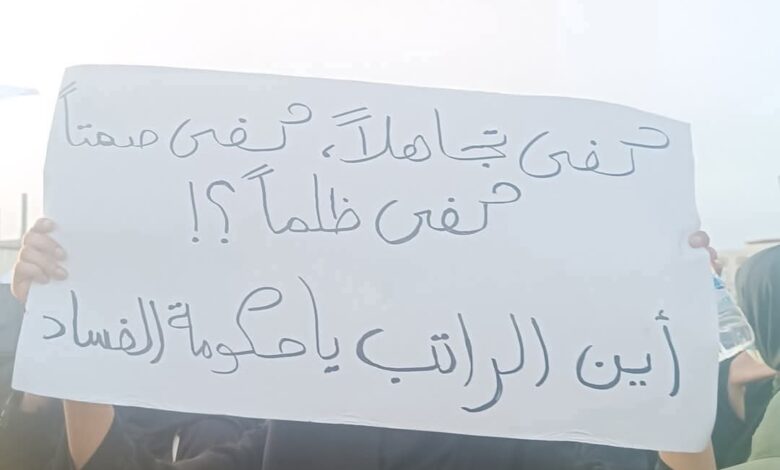 كفى تجاهلاً، كفى صمتاً
كفى ظلماً؟!
أين الراتب ياحكومة الفساد